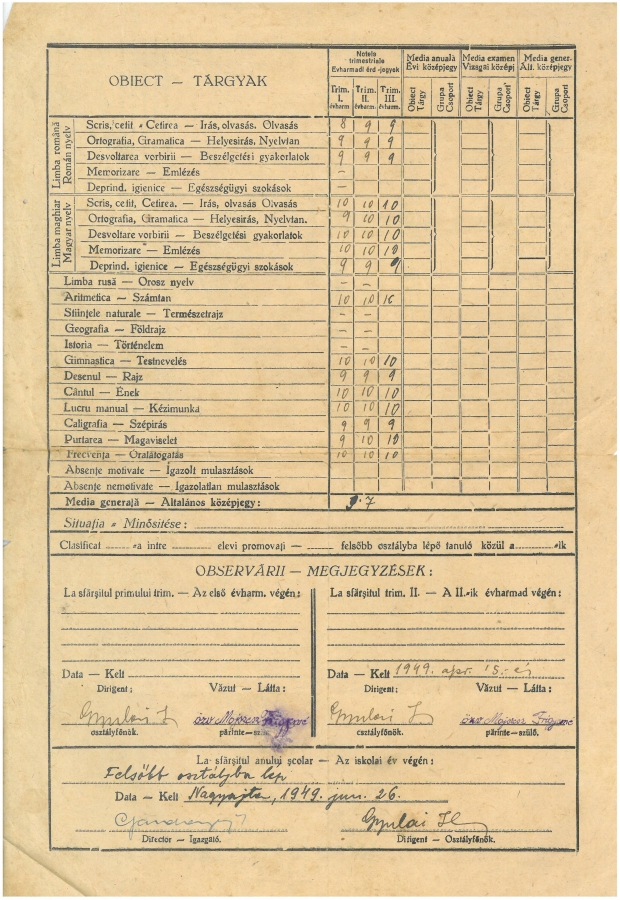 OBIECT — TÁRGYAK
Notele trimestriale
Évharmadi érd-jegyek
Media anuală
Évi középjegy
Media examen
Vizsgai középj
Media gener.
Ált. középjegy
Trim. I. évharm.
Trim. II. évharm.
Trim. III. évharm.
Obiect Tárgy
Grupa Csoport
Obiect Tárgy
Grupa Csoport
Obiect Tárgy
Grupa Csoport
Limba română
Román nyelv
Scris, cetit, Cetirea — Irás, olvasás. Olvasás 8 9 9
Ortografia, Gramatica — Helyesirás, Nyelvtan 9 9 9
Desvoltarea vorbirii — Beszélgetési gyakorlatok 9 9 9
Memorizare — Emlézés –
Deprind. igienice — Egészségügyi szokások –
Limba maghiar
Magyar nyelv
Scris, cetit, Cetirea. — Irás, olvasás Olvasás 10 10 10
Ortografia, Gramatica — Helyesirás, Nyelvtan. 9 10 10
Desvoltare vorbirii — Beszélgetési gyakorlatok 10 10 10
Memorizare — Emlézés 10 10 10
Deprind. igienice — Egészségügyi szokások 9 9 9
Limba rusă — Orosz nyelv – –
Aritmetica — Számtan 10 10 10
Stiințele naturale — Természetrajz – –
Geografia — Földrajz – –
Istoria — Történelem – –
Gimnastica — Testnevelés 10 10 10
Desenul — Rajz 9 9 9
Cântul — Ének 10 10 10
Lucru manual — Kézimunka 10 10 10
Caligrafia — Szépirás 9 9 9
Purtarea — Magaviselet 9 10 10
Frecvența — Óralátogatás 10 10 10
Absențe motivate — Igazolt mulasztások
Absențe nemotivate — Igazolatlan mulasztások
Media generală — Általános középjegy: 9.7
Situația - Minősitése:
Clasificat -a intre elevi promovați — felsőbb osztályba lépő tanuló közül a -ik
OBSERVĂRII — MEGJEGYZÉSEK:
La sfârșitul primului trim. — Az első évharm. végén:
La sfârșitul trim. II. — A II.-ik évharmad végén:
Data — Kelt
Data — Kelt 1949. apr. 15.-én
Dirigent: Văzut — Látta:
Dirigent: Văzut — Látta:
Gyulai özv Mojzes Frigyesné
Gyulai özv Mojzes Frigyesné
osztályfőnök. părinte—szülő.
osztályfőnök. părinte—szülő.
La sfârșitul anului școlar — Az iskolai év végén:
Felsőbb osztályba lép
Data — Kelt Nagyajta, 1949. jun. 26.
Gyulai
Director — Igazgáló. Dirigent — Osztályfőnök.